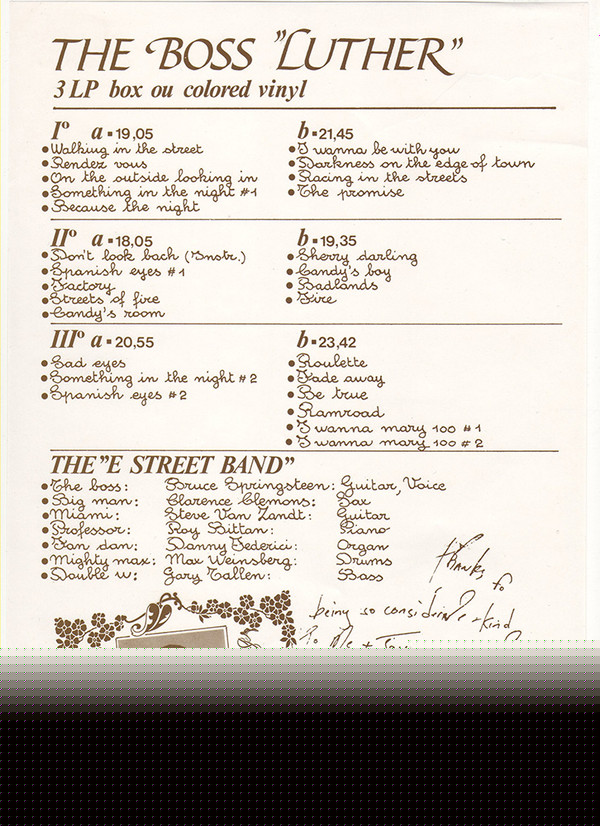 THE BOSS "LUTHER"
3 LP box ou colored vinyl
Iº a ▪ 19,05
•Walkiug in the street
•Rendez vous
•On the outside looking in
•Something in the night #1
•Because the night
b ▪ 21,45
•I wanna be with you
•Darkness on the edge of town
•Racing in the streets
•The promise
IIº a ▪ 18,05
•Don't look bach (Instr.)
•Spanish eyes #1
•Factory
•Streets of fire
•Candy's room
b ▪ 19,35
•Sherry darling
•Candy's boy
•Badlands
•Fire
IIIº a ▪ 20,55
•Sad eyes
•Something in the night #2
•Spanish eyes #2
b ▪ 23,42
•Roulette
•Fade away
•Be true
•Ramroad
•I wanna mary 100 #1
•I wanna mary 100 #2
THE "E STREET BAND"
•The boss: Bruce Springsteen: Guitar, Voice
•Big man: Clarence Clemons: Sax
•Miami: Steve Van Zandt: Guitar
•Professor: Roy Bittan: Piano
•Fan dan: Danny Federici: Organ
•Mighty max: Max Weinsberg: Drums
•Double w: Gary Tallen: Bass
thanks fo
being so considerate + kind